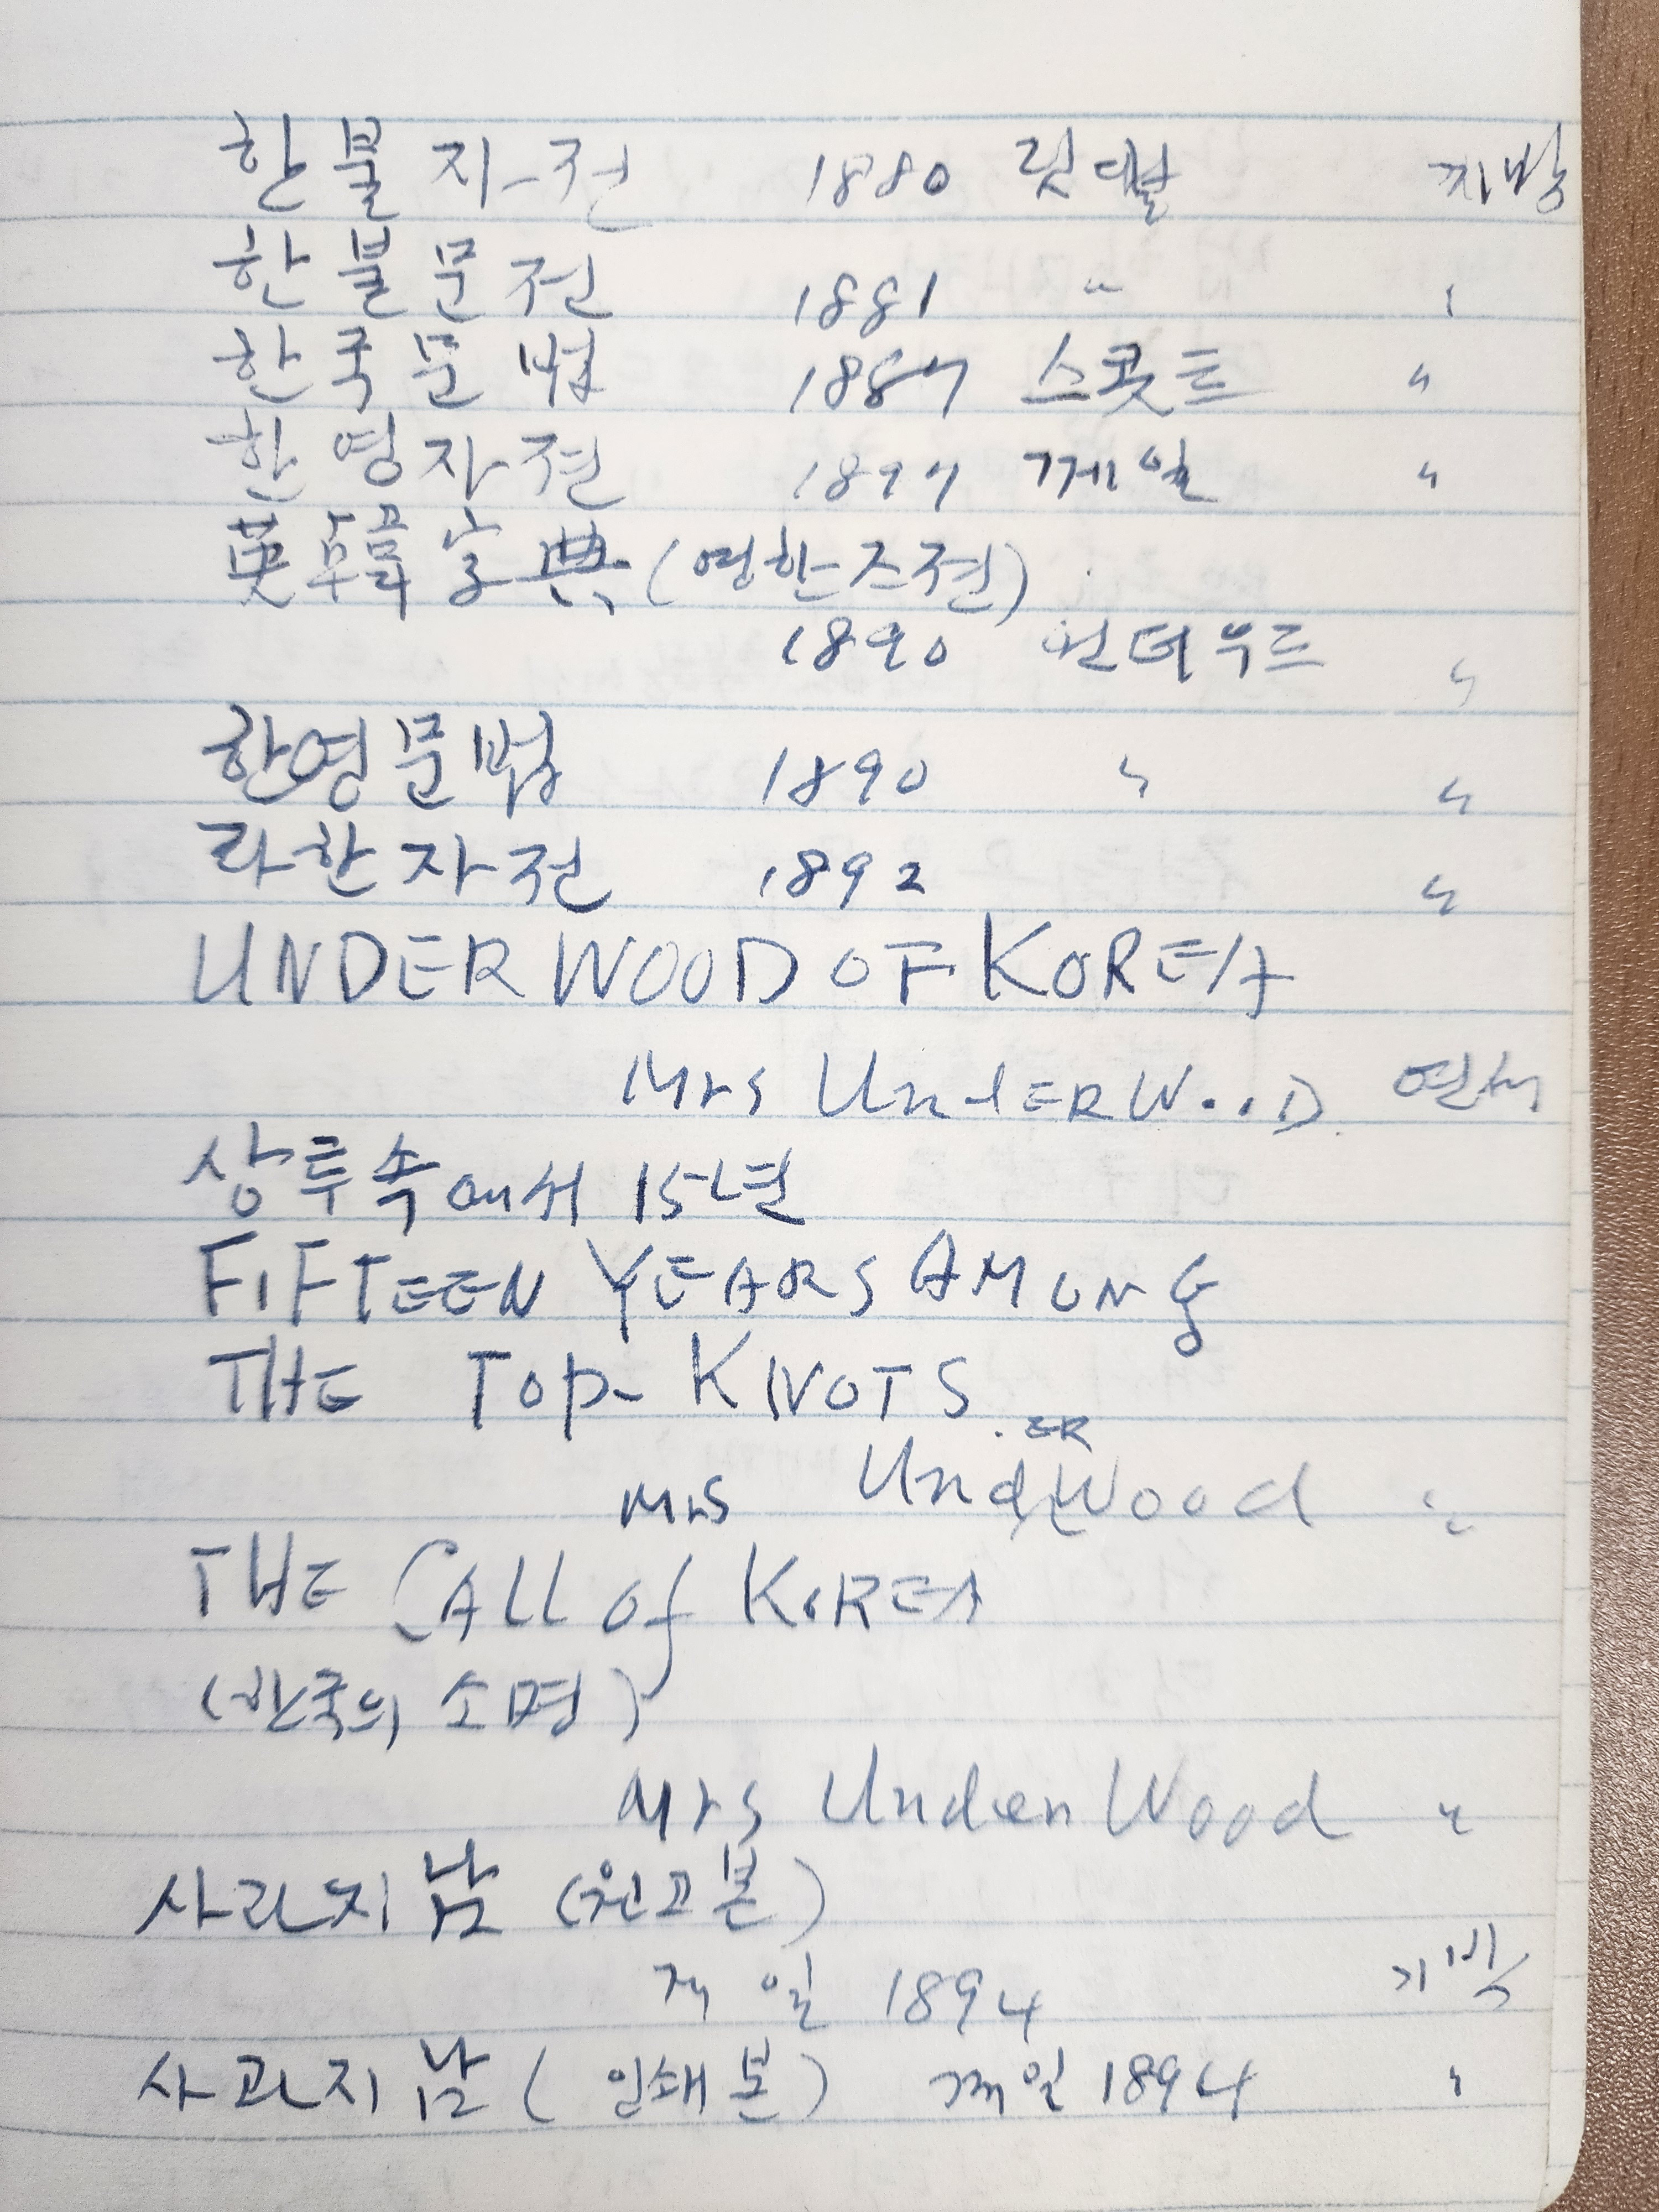 한불자전 1880 릿델 지방
한불문전 1881 〃 〃
한국문법 1887 스콧트 〃
한영자전 1897 게일 〃
英韓字典 (영한ᄌᆞ전)
1890 언더우드 〃
한영문법 1890 〃 〃
라한자전 1892 〃
UNDERWOOD OF KOREA
Mrs UndERWOOD
상투속에서 15년
FIFTEEN YEARS AMONG
THE TOP-KNOTS
Mrs UndERWood 〃
THE CALL of KOREA
(한국의 소명)
Mrs UnderWood 〃
사과지남 (원고본)
게일 1894
사과지남 (인쇄본) 게일 1894 〃